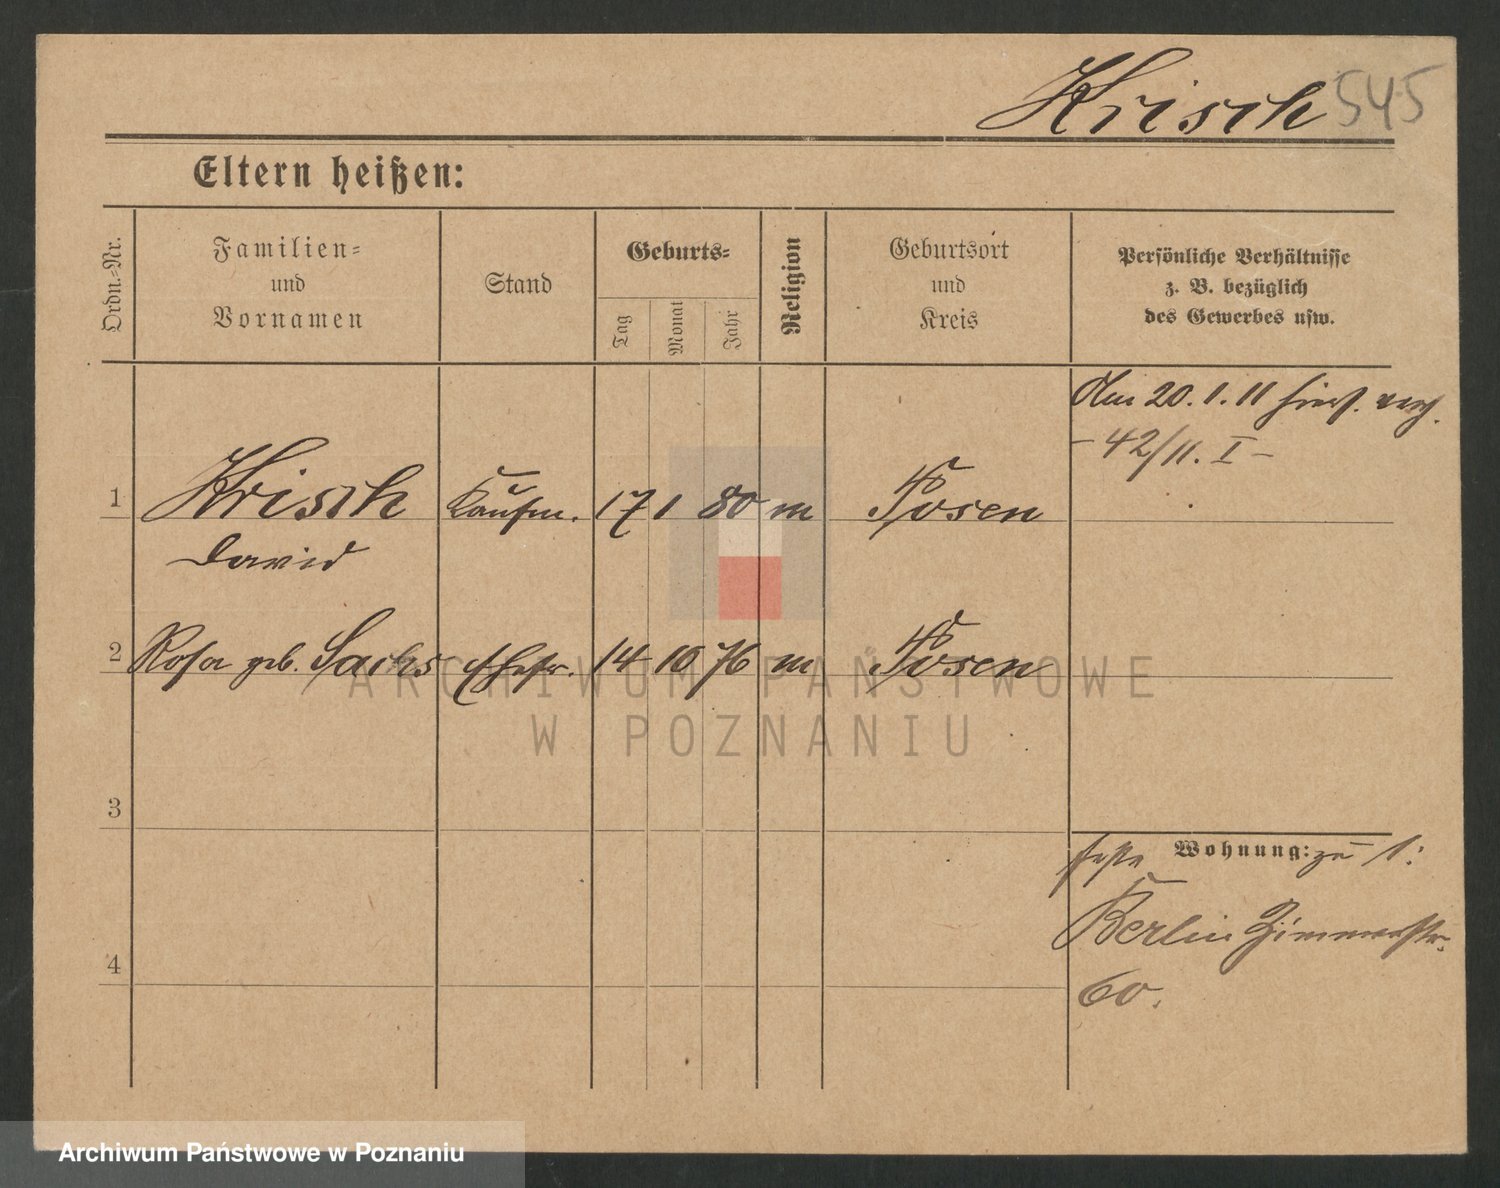 Krisch 545
Eltern heißen:
Ordn.-Nr.
Familien-
und
Vornamen
Stand
Geburts-
Tag
Monat
Jahr
Religion
Geburtsort
und
Kreis
Persönliche Verhältnisse
z. B. bezüglich
des Gewerbes usw.
Am 20.1.11 hiers.
- 42/11. I -
1 Krisch Kaufm. 17 1 80 m Posen
David
2 Rosa geb. Sachs Ehefr. 14 10 76 m Posen
3
feste Wohnung: zu 1:
Berlin Zimmerstr.
60.
4
ARCHIWUM PAŃSTWOWE
W POZNANIU
Archiwum Państwowe w Poznaniu